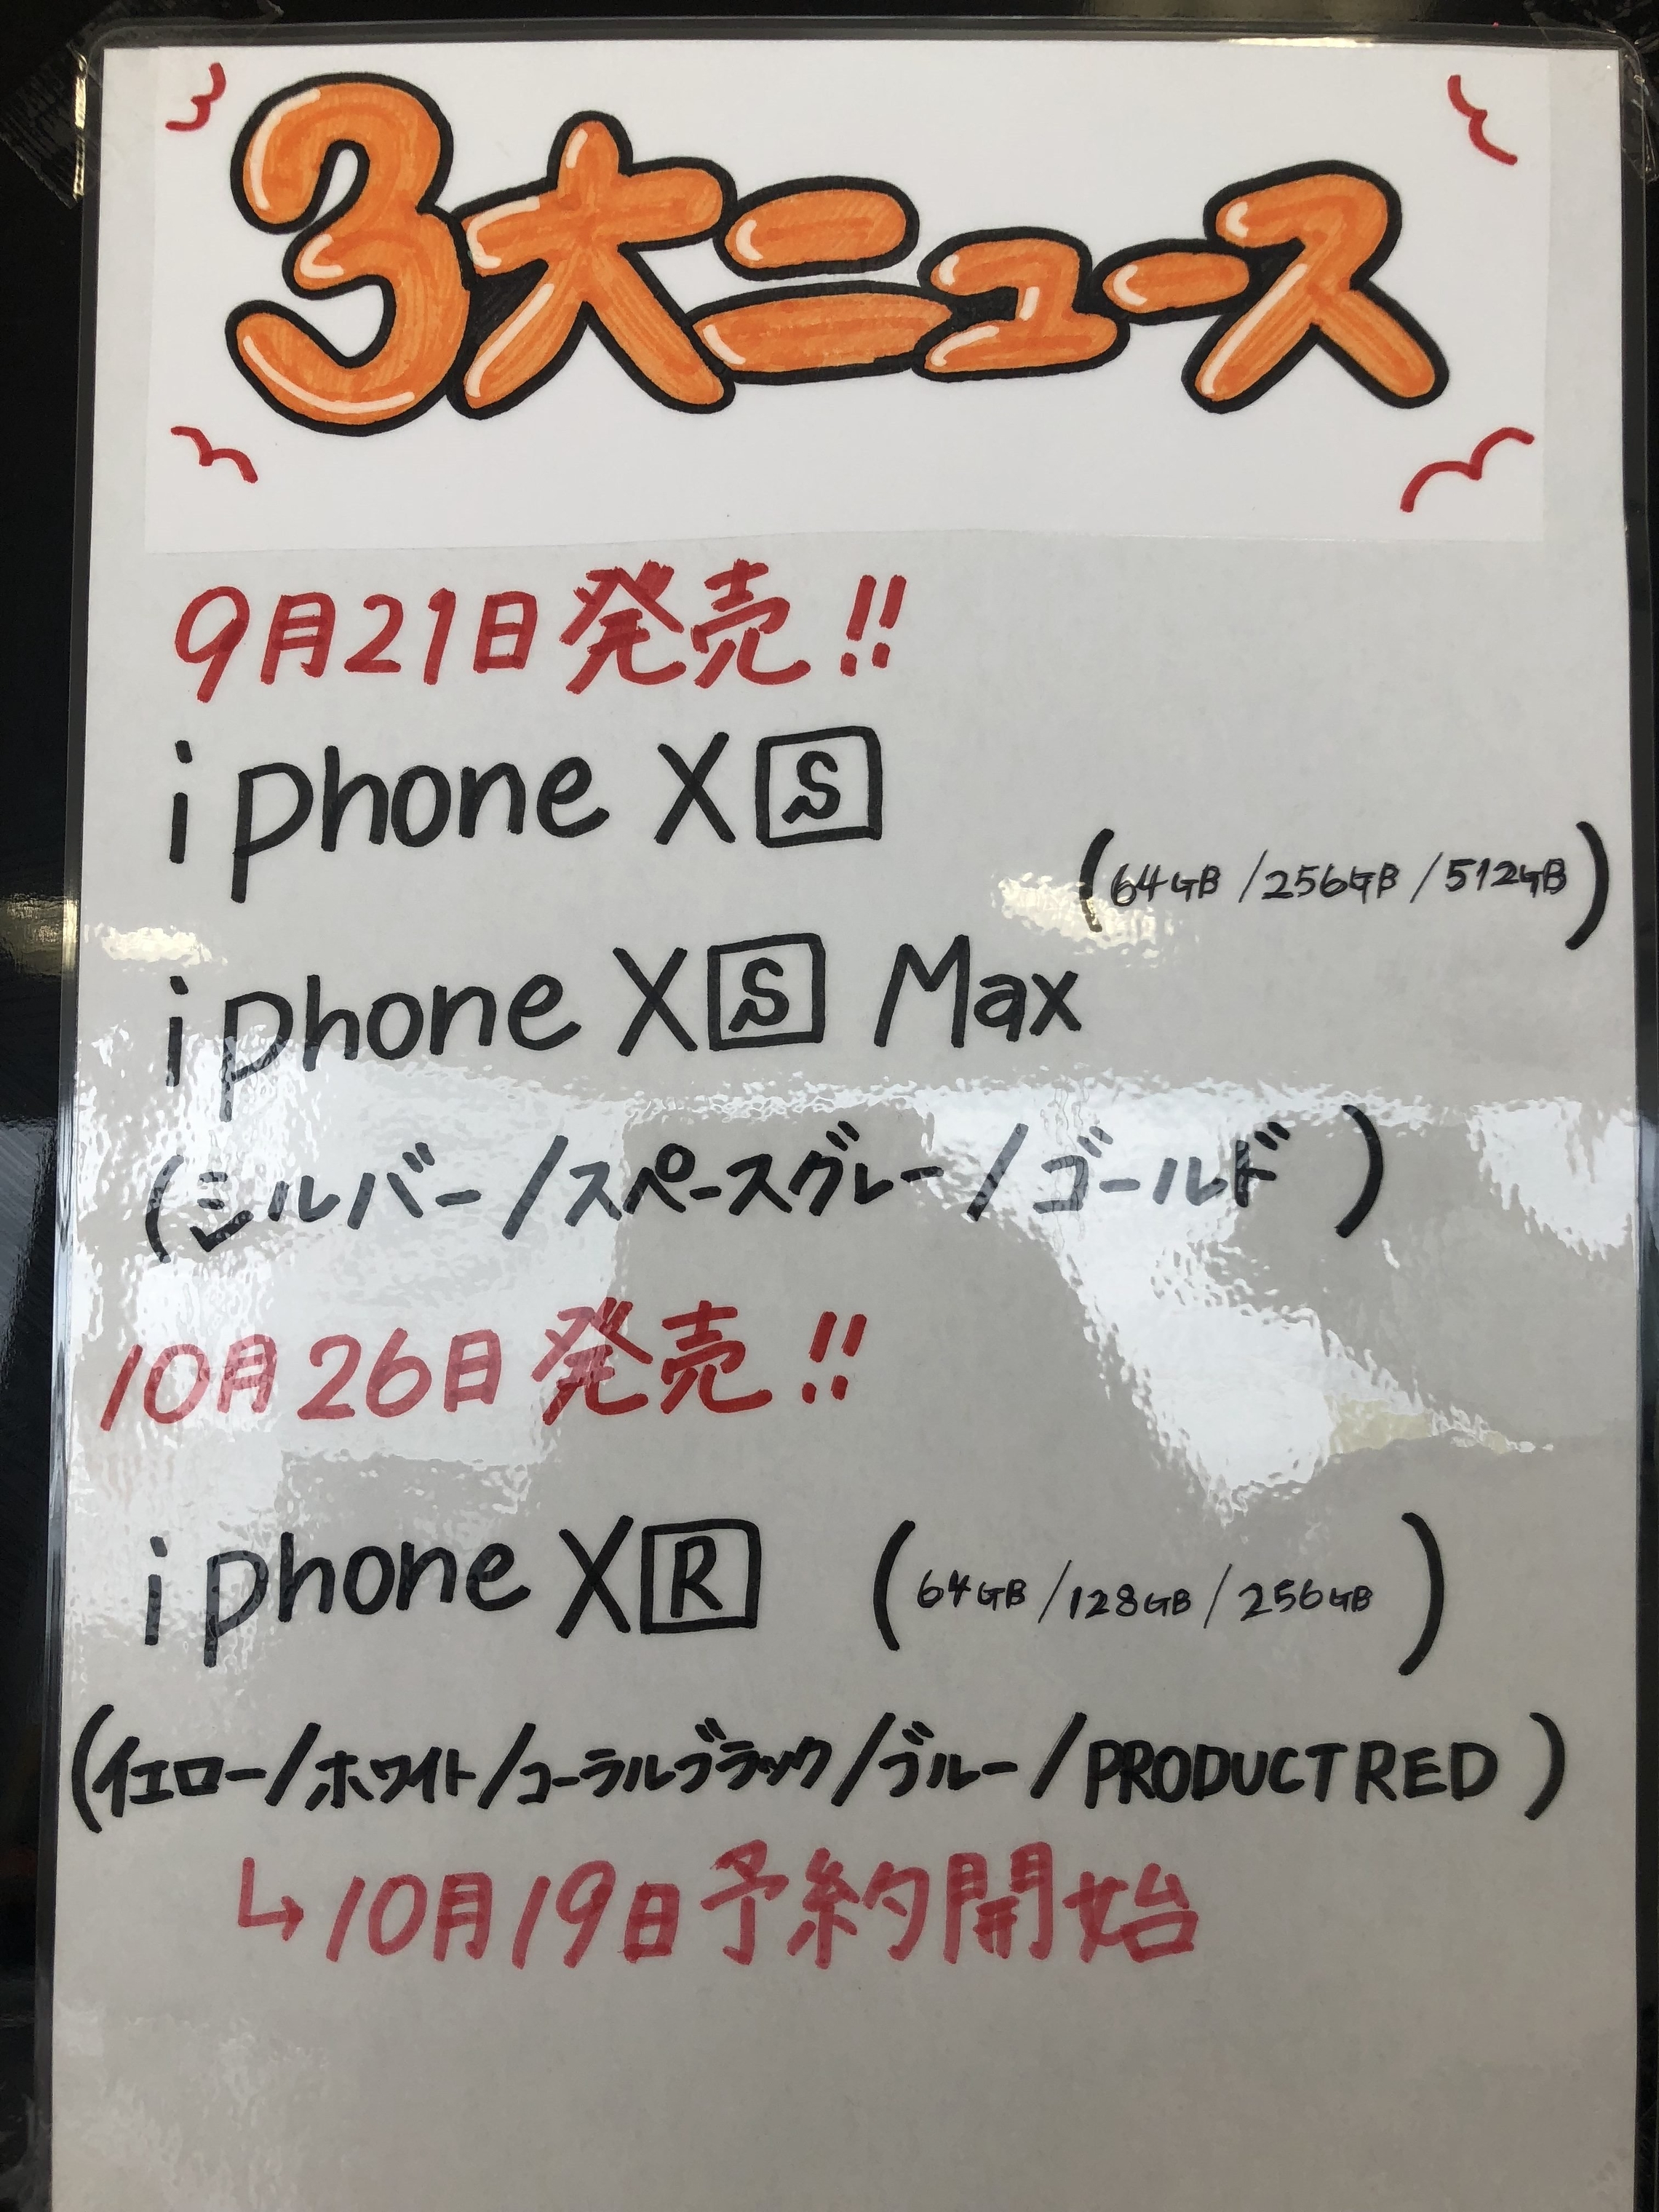 3大ニュース
9月21日発売!!
iphone XS
(64GB/256GB/512GB)
iphone XS Max
(シルバー/スペースグレー/ゴールド)
10月26日発売!!
iphone XR (64GB/128GB/256GB)
(イエロー/ホワイト/コーラルブラック/ブルー/PRODUCT RED)
↳10月19日予約開始